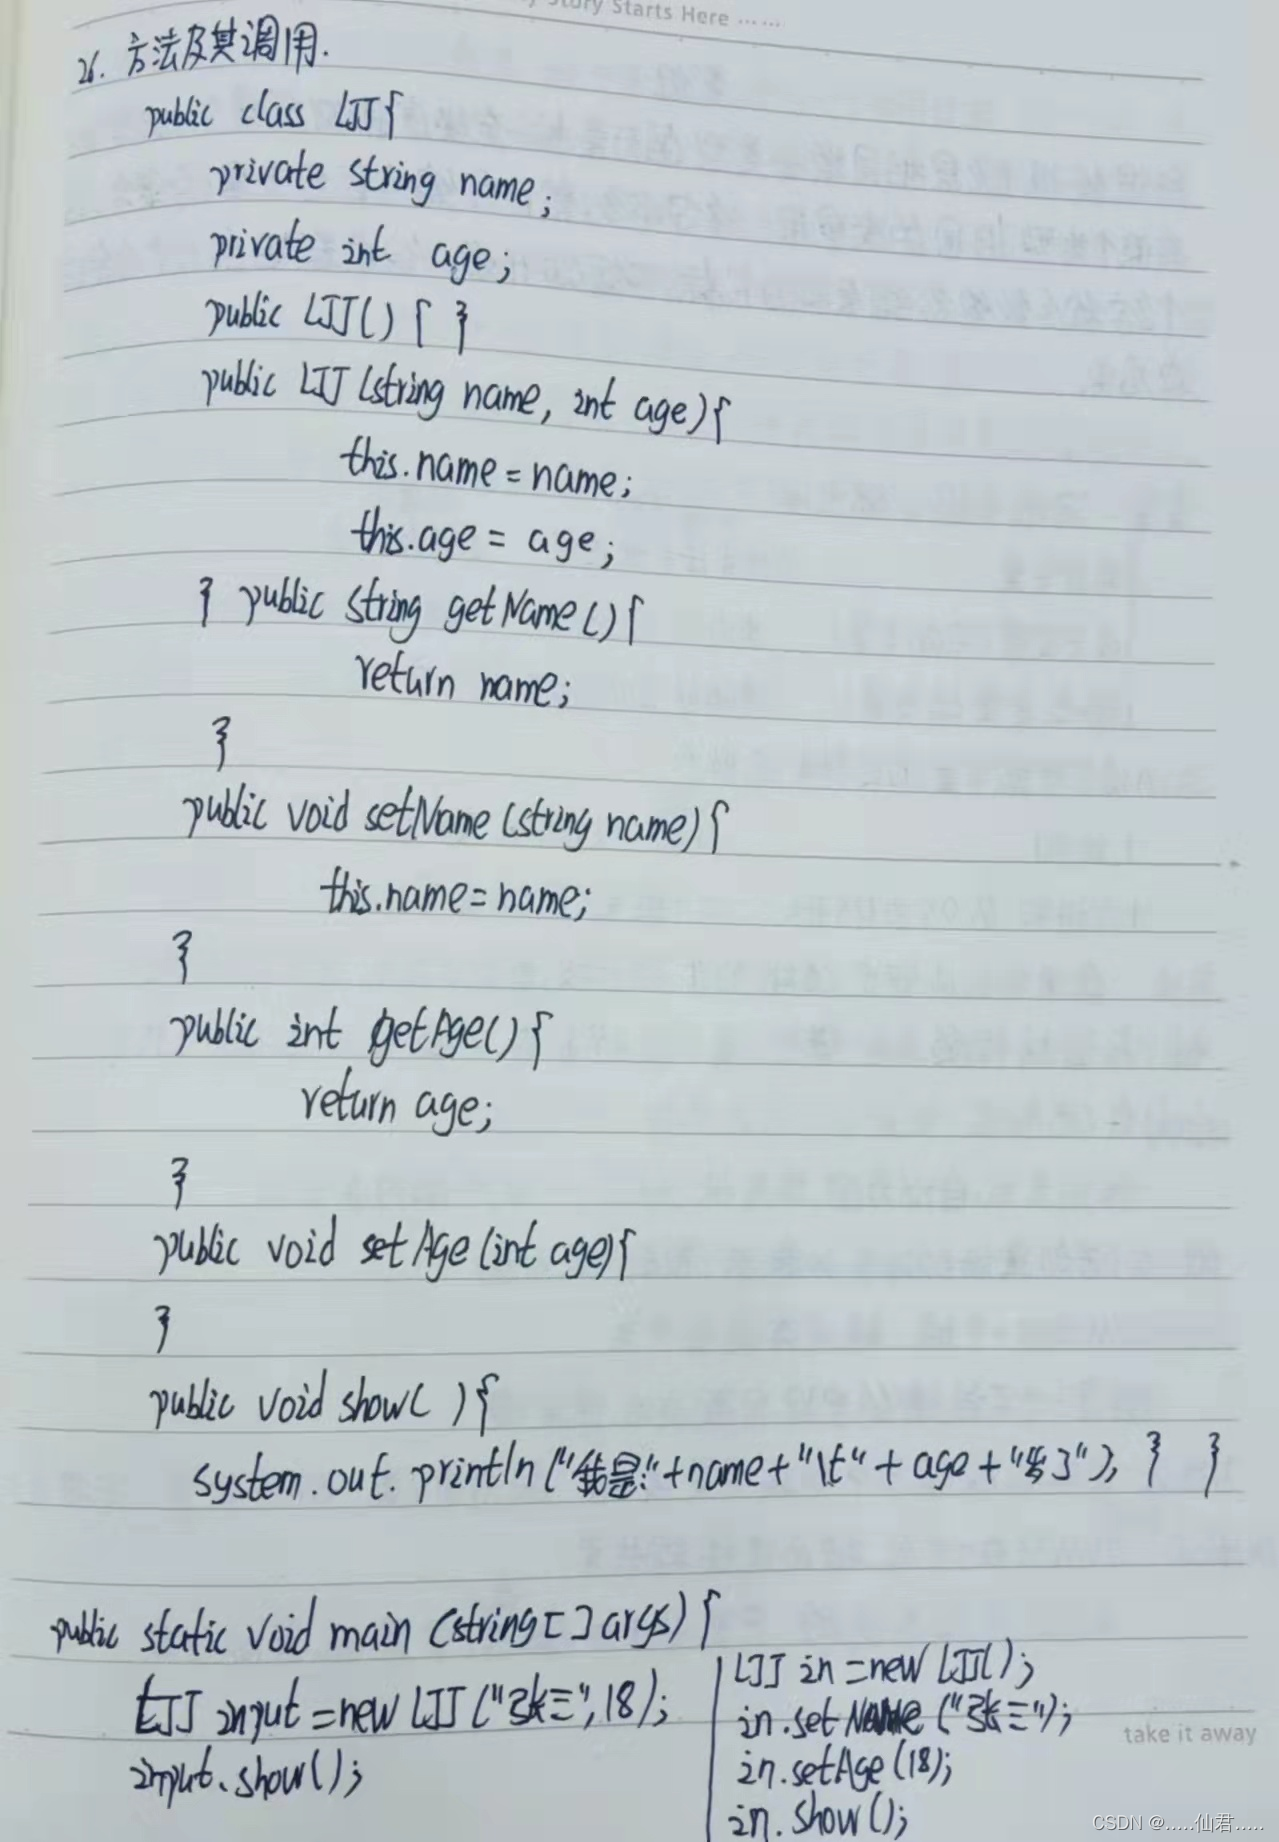 Story Starts Here ......
26. 方法及其调用.
public class LJJ{
private string name;
private int age;
public LJJ() { }
public LJJ (string name, int age){
this.name = name;
this.age = age;
} public string getName(){
return name;
}
public void setName (string name){
this.name = name;
}
public int getAge(){
return age;
}
public void setAge (int age){
}
public void show( ){
system.out.println("我是:"+name+"\t"+age+"岁了"); } }
public static void main (string[] args) {
LJJ input = new LJJ ("张三",18);
input.show();
LJJ in = new LJJ();
in.setName ("张三");
in.setAge (18);
in.show();
take it away
CSDN @.....仙君.....